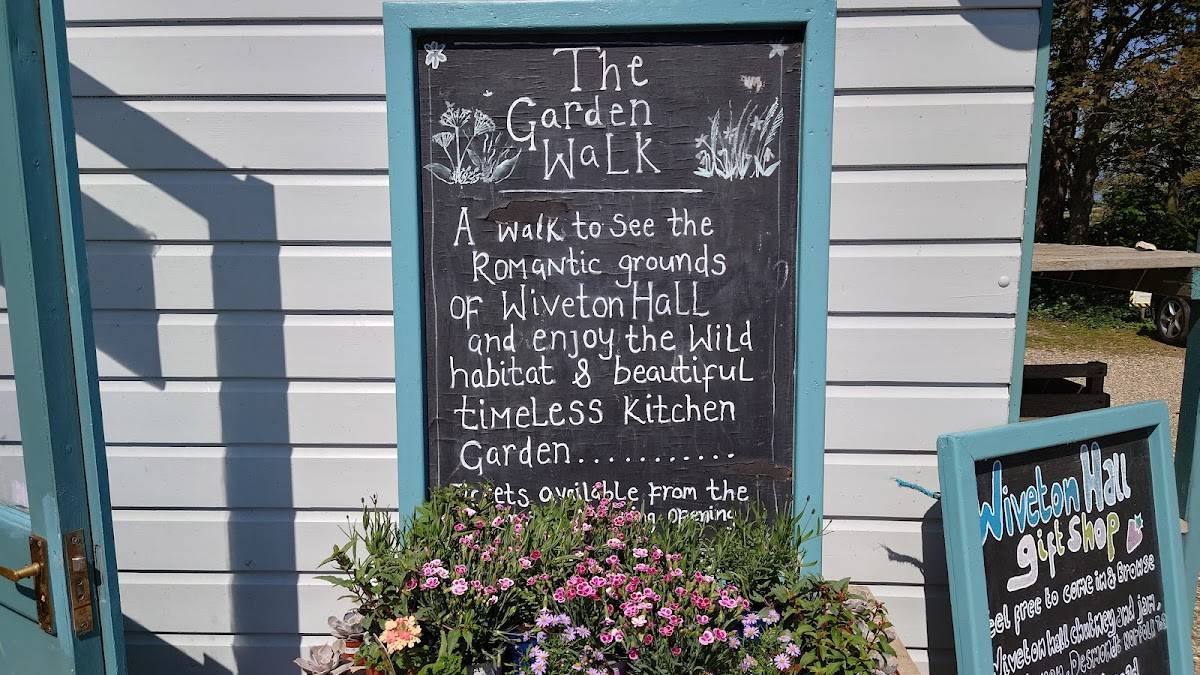 The
Garden
Walk
A walk to see the
Romantic grounds
of Wiveton Hall
and enjoy the Wild
habitat & beautiful
timeless Kitchen
Garden...........
Tickets available from the
opening
Wiveton Hall
gift shop
feel free to come in & browse
Wiveton hall chutney and jam,
Desmonds norfolk